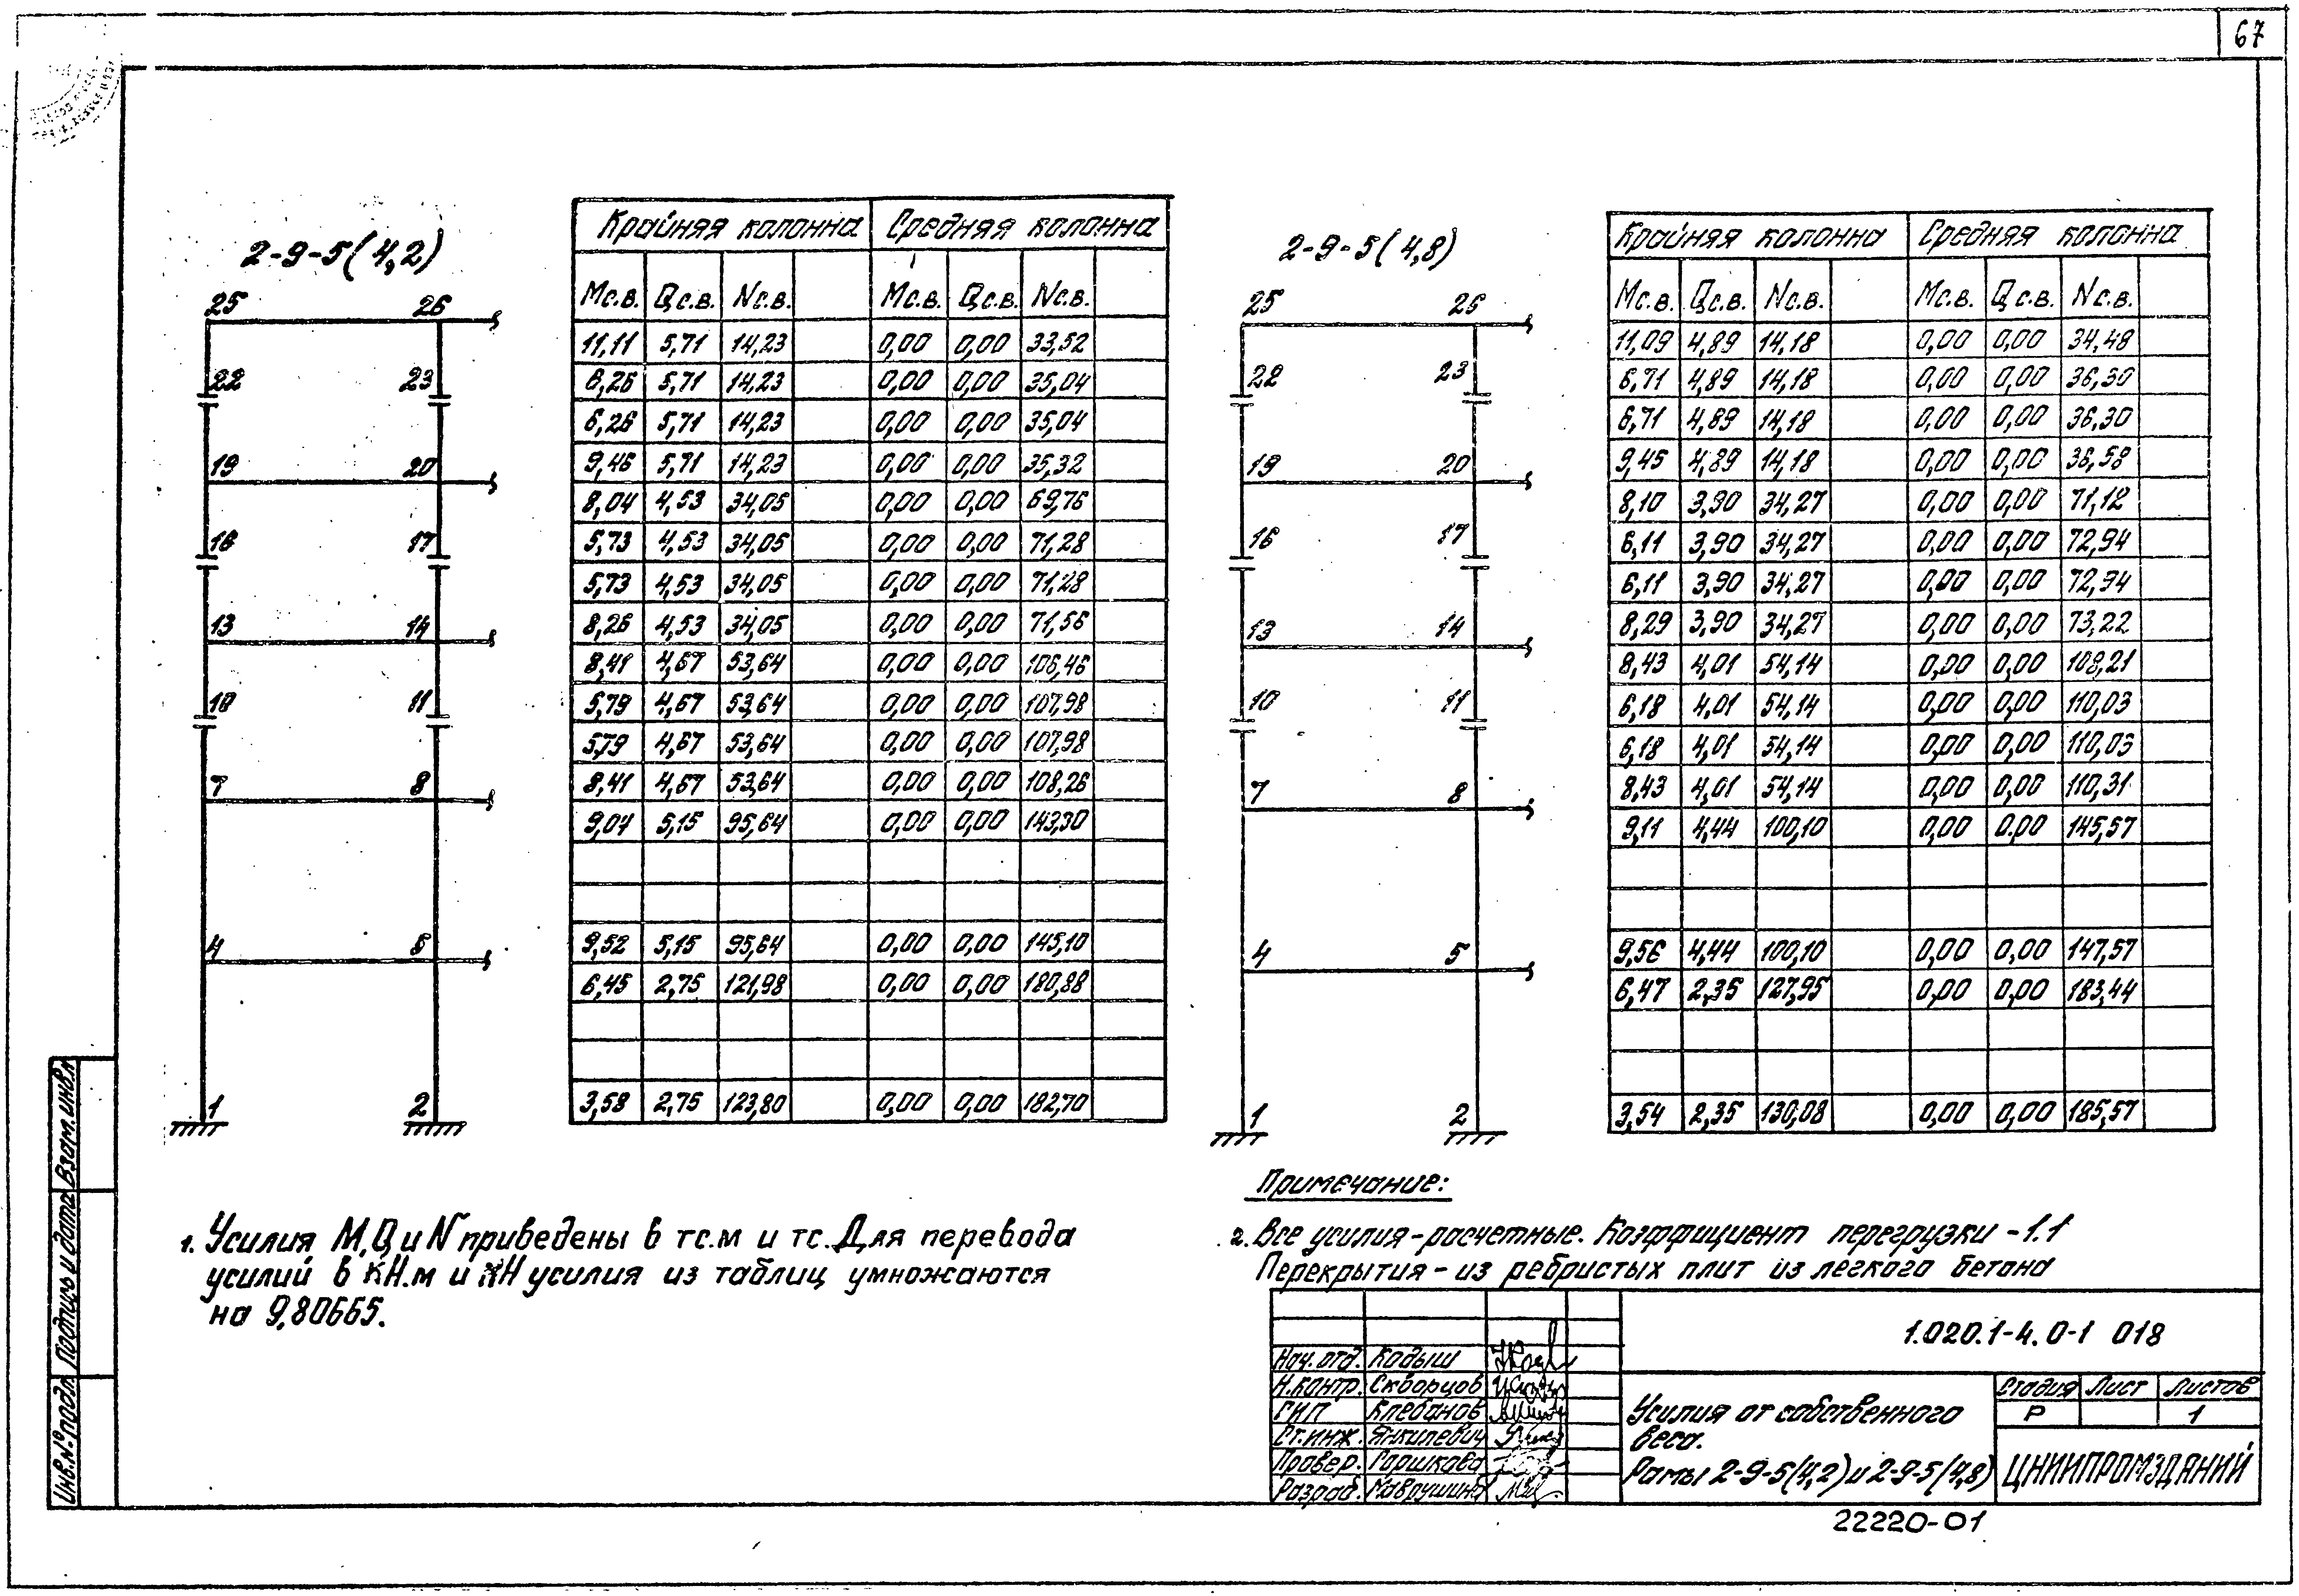 67
2-9-5(4,2)
25 26
22 23
19 20
16 17
13 14
10 11
7 8
4 5
1 2
Крайняя колонна Средняя колонна
Mс.в. Qс.в. Nс.в. Mс.в. Qс.в. Nс.в.
11,11 5,71 14,23 0,00 0,00 33,52
6,26 5,71 14,23 0,00 0,00 35,04
6,26 5,71 14,23 0,00 0,00 35,04
9,46 5,71 14,23 0,00 0,00 35,32
8,04 4,53 34,05 0,00 0,00 69,76
5,73 4,53 34,05 0,00 0,00 71,28
5,73 4,53 34,05 0,00 0,00 71,28
8,26 4,53 34,05 0,00 0,00 71,56
8,41 4,67 53,64 0,00 0,00 106,46
5,79 4,67 53,64 0,00 0,00 107,98
5,79 4,67 53,64 0,00 0,00 107,98
8,41 4,67 53,64 0,00 0,00 108,26
9,04 5,15 95,64 0,00 0,00 143,30
9,52 5,15 95,64 0,00 0,00 145,10
6,45 2,75 121,98 0,00 0,00 180,88
3,58 2,75 123,80 0,00 0,00 182,70
2-9-5(4,8)
25 26
22 23
19 20
16 17
13 14
10 11
7 8
4 5
1 2
Крайняя колонна Средняя колонна
Mс.в. Qс.в. Nс.в. Mс.в. Qс.в. Nс.в.
11,09 4,89 14,18 0,00 0,00 34,48
6,71 4,89 14,18 0,00 0,00 36,30
6,71 4,89 14,18 0,00 0,00 36,30
9,45 4,89 14,18 0,00 0,00 36,58
8,10 3,90 34,27 0,00 0,00 71,12
6,11 3,90 34,27 0,00 0,00 72,94
6,11 3,90 34,27 0,00 0,00 72,94
8,29 3,90 34,27 0,00 0,00 73,22
8,43 4,01 54,14 0,00 0,00 108,21
6,18 4,01 54,14 0,00 0,00 110,03
6,18 4,01 54,14 0,00 0,00 110,03
8,43 4,01 54,14 0,00 0,00 110,31
9,11 4,44 100,10 0,00 0,00 145,57
9,56 4,44 100,10 0,00 0,00 147,57
6,47 2,35 127,95 0,00 0,00 183,44
3,54 2,35 130,08 0,00 0,00 185,57
1. Усилия M, Q и N приведены в тс.м и тс. Для перевода
усилий в кН.м и кН усилия из таблиц умножаются
на 9,80665.
Примечание:
2. Все усилия - расчетные. Коэффициент перегрузки - 1.1
Перекрытия - из ребристых плит из легкого бетона
Нач. отд. Кодыш
Н. контр. Скворцов
ГИП Клебанов
Ст. инж. Янкилевич
Провер. Горшкова
Разраб. Маврушина
1.020.1-4.0-1 018
Усилия от собственного
веса.
Рамы 2-9-5(4,2) и 2-9-5(4,8)
Стадия Лист Листов
Р 1
ЦНИИПРОМЗДАНИЙ
22220-01
Инв.№ подл. Подпись и дата Взам. инв.№